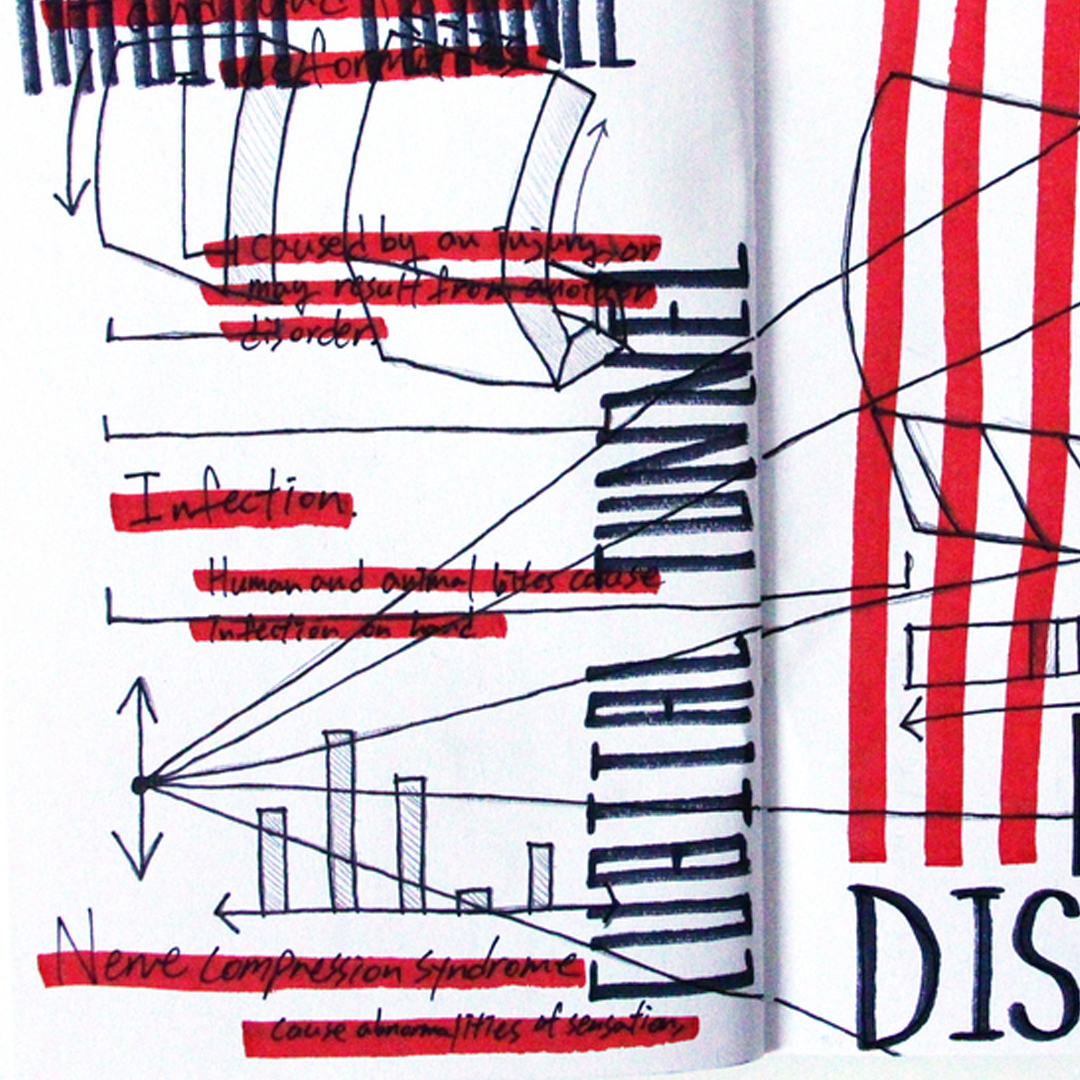 deformities
caused by an injury, or
may result from another
disorder.
Infection.
Human and animal bites cause
Infection on hand
Nerve compression syndrome
cause abnormalities of sensation,
CUBITAL TUNNEL
DIS